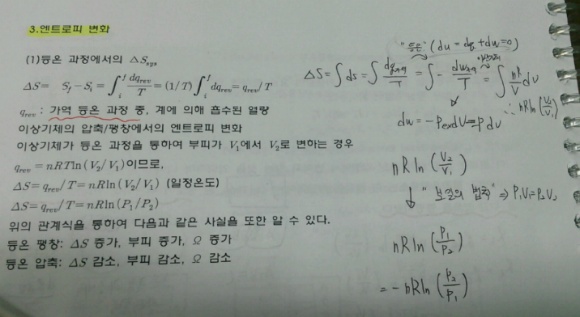 3.엔트로피 변화
(1)등온 과정에서의 △S_sys
ΔS = S_f - S_i = ∫_i^f dq_rev/T = (1/T) ∫_i^f dq_rev = q_rev/T
q_rev : 가역 등온 과정 중, 계에 의해 흡수된 열량
이상기체의 압축/팽창에서의 엔트로피 변화
이상기체가 등온 과정을 통하여 부피가 V₁에서 V₂로 변하는 경우
q_rev = nRT ln(V₂/V₁)이므로,
ΔS = q_rev/T = nR ln(V₂/V₁) (일정온도)
ΔS = q_rev/T = nR ln(P₁/P₂)
위의 관계식을 통하여 다음과 같은 사실을 또한 알 수 있다.
등온 팽창: ΔS 증가, 부피 증가, Ω 증가
등온 압축: ΔS 감소, 부피 감소, Ω 감소
"등온" (du = dq + dw = 0)
ΔS = ∫ds = ∫ dq_rev/T = ∫ - dw_rev/T = ∫ nR/V dV
∴ nR ln(V₂/V₁)
dw = -P_ex dV = -P dV
nR ln (V₂/V₁)
↓ "보일의 법칙" ⇒ P₁V₁=P₂V₂
nR ln (P₁/P₂)
= - nR ln (P₂/P₁)